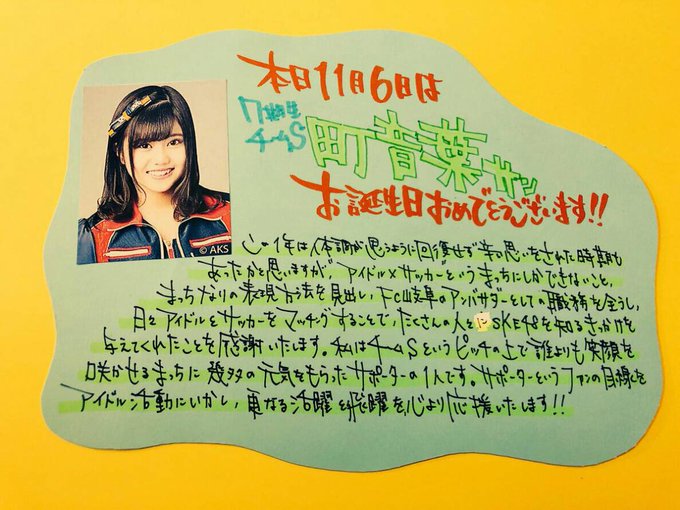 本日11月6日は
7期生
チームS
町音葉サン
お誕生日おめでとうございます!!
© AKS
この1年は体調が思うように回復せず辛い思いをされた時期も
あったかと思いますが、アイドル×サッカーというまっちにしかできないこと、
まっちなりの表現方法を見出し、FC岐阜のアンバサダーとしての職務を全うし、
日々アイドルとサッカーをマッチングすることで、たくさんの人々にSKE48を知るきっかけを
与えてくれたことを感謝いたします。私はチームSというピッチの上で誰よりも笑顔を
咲かせるまっちに幾多の元気をもらったサポーターの1人です。サポーターというファンの目線を
アイドル活動にいかし、更なる活躍と飛躍を心より応援いたします!!